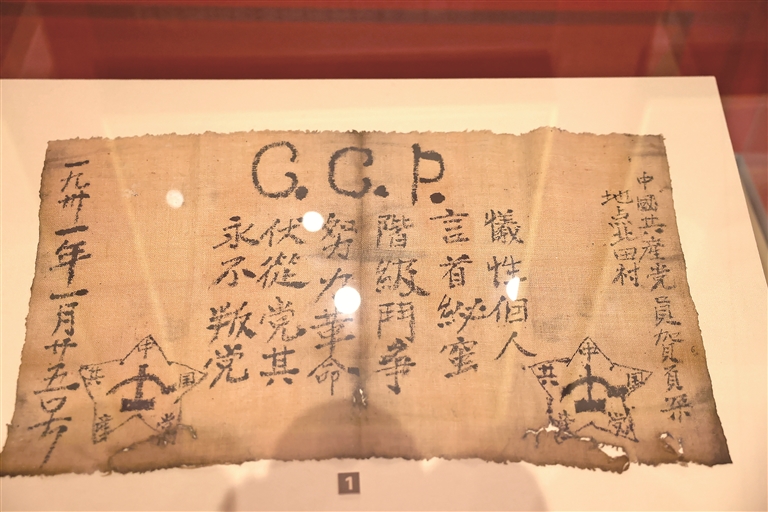 C.C.P.
中國共産党員賀頁朶
地点北田村
犧性個人
言首秘蜜
階級鬥争
努力革命
伏從党其
永不叛党
一九卅一年一月廿五号
中国共産党
中国共産党
1